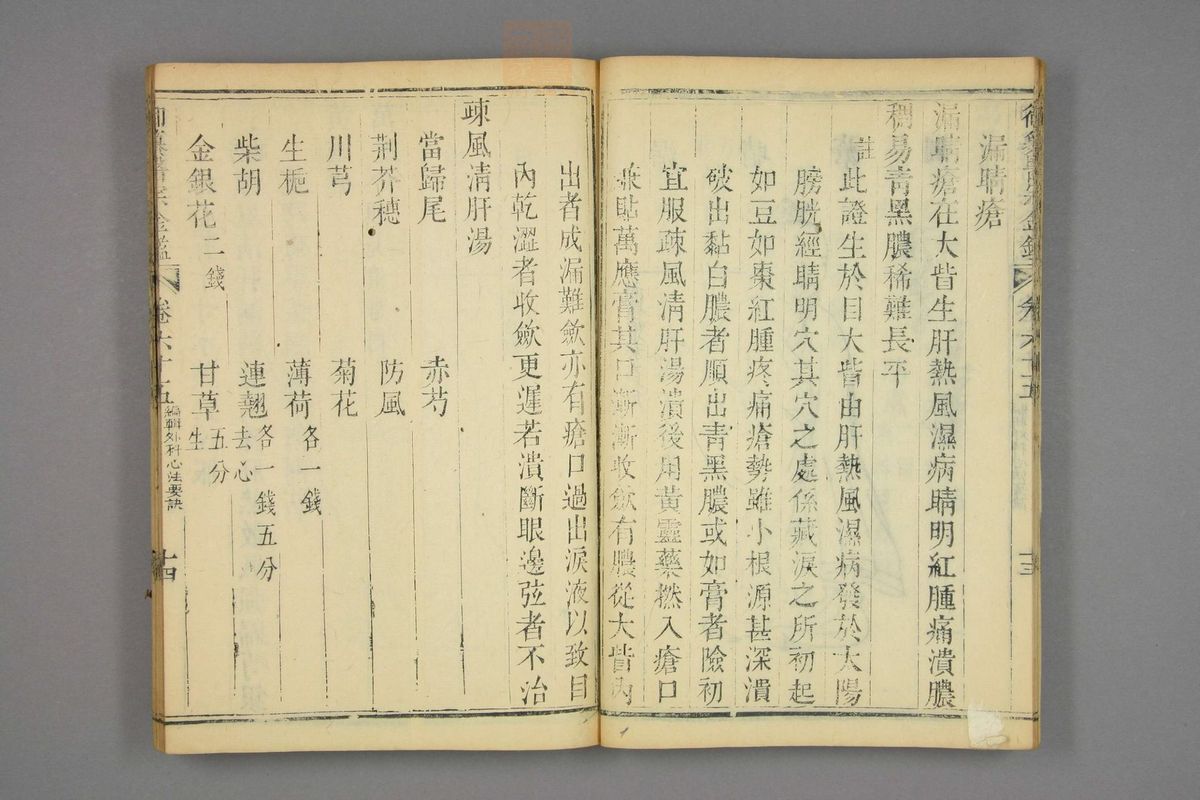 漏睛瘡
漏睛瘡在大眥生肝熱風濕病睛明紅腫痛潰膿
稠易青黑膿稀難長平
註此證生於目大眥由肝熱風濕病發於太陽
膀胱經睛明穴其穴之處係藏淚之所初起
如豆如棗紅腫疼痛瘡勢雖小根源甚深潰
破出黏白膿者順出青黑膿或如膏者險初
宜服疎風清肝湯潰後用黃靈藥撚入瘡口
兼貼萬應膏其口漸漸收斂有膿從大眥內
出者成漏難斂亦有瘡口過出淚液以致目
內乾澀者收斂更遲若潰斷眼邊弦者不治
疎風清肝湯
當歸尾 赤芍
荆芥穗 防風
川芎 菊花
生梔 薄荷各一錢
柴胡 連翹去心各一錢五分
金銀花二錢 甘草生五分
卷六十五 編輯外科心法要訣 十四